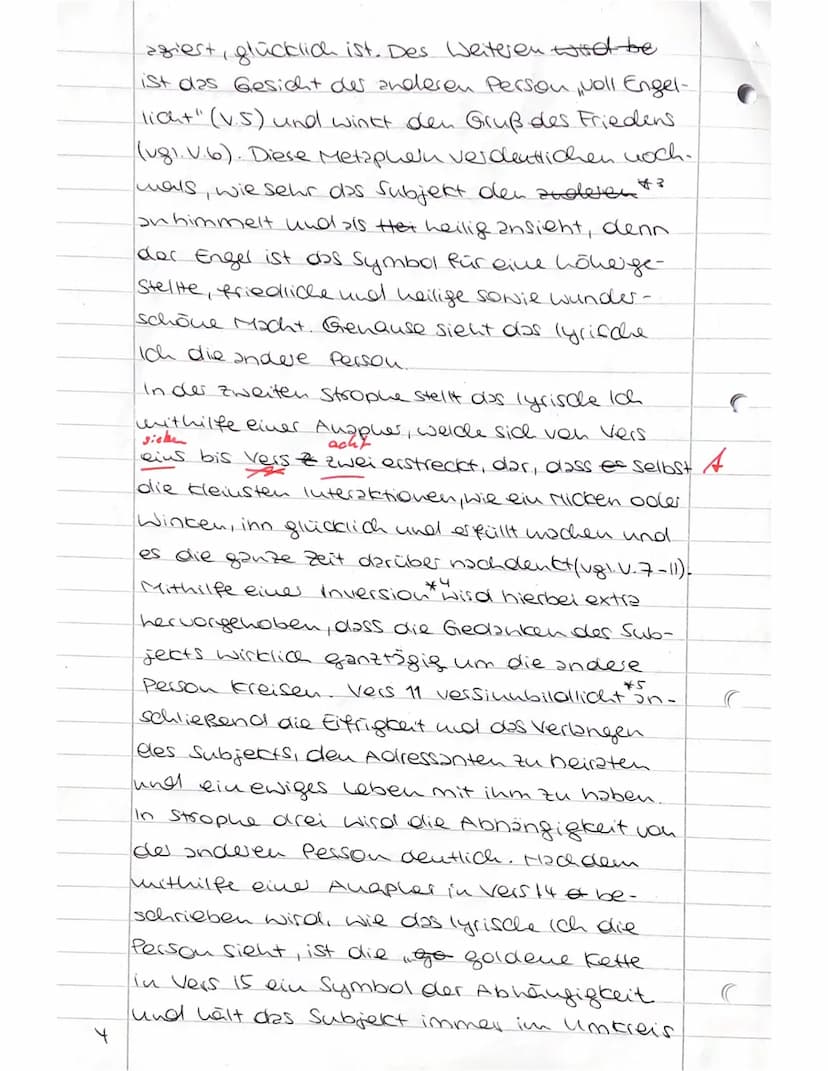 agiert, glücklich ist. Des Weiteren wird be
ist das Gesicht der anderen Person „voll Engel-
licht" (V.5) und winkt den Gruß des Friedens
(vgl. V.6). Diese Metaphern verdeutlichen noch-
mals, wie sehr das Subjekt den anderen *3
anhimmelt und als Hei heilig ansieht, denn
der Engel ist das Symbol für eine höherge-
stellte, friedliche und heilige sowie wunder-
schöne Macht. Genauso sieht das lyrische
Ich die andere Person.
In der zweiten Strophe stellt das lyrische Ich
mithilfe einer Anapher, welche sich von Vers
sieben acht
eins bis Vers z zwei erstreckt, dar, dass es selbst A
die kleinsten Interaktionen, wie ein Nicken oder
Winken, ihn glücklich und erfüllt machen und
es die ganze Zeit darüber nachdenkt (vgl. V.7-11).
Mithilfe einer Inversion *4 wird hierbei extra
hervorgehoben, dass die Gedanken des Sub-
jects wirklich ganztägig um die andere
Person kreisen. Vers 11 versinnbildlicht *5 an-
schließend die Eifrigkeit und das Verlangen
des Subjects, den Adressanten zu heiraten
und ein ewiges Leben mit ihm zu haben.
In Strophe drei wird die Abhängigkeit von
der anderen Person deutlich. Nachdem
mithilfe einer Anapher in Vers 14 be-
schrieben wird, wie das lyrische Ich die
Person sieht, ist die „go goldene Kette
in Vers 15 ein Symbol der Abhängigkeit
und hält das Subjekt immer im Umkreis
4